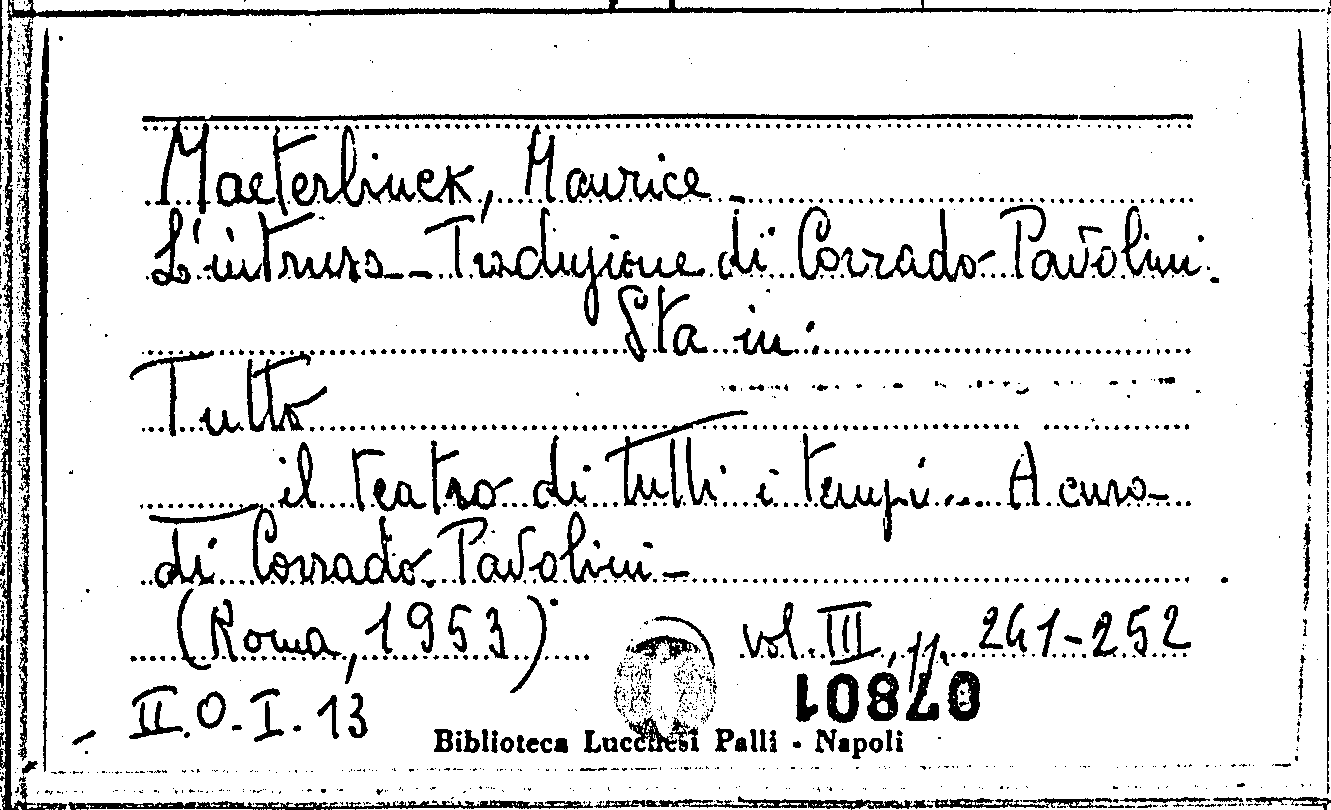 Maeterlinck, Maurice
L'intruso - Traduzione di Corrado Pavolini.
Sta in:
Tutto
il teatro di tutti i tempi... A cura
di Corrado Pavolini -
(Roma, 1953) vol. III, pp. 241-252
07801
II.O.I.13
Biblioteca Lucchesi Palli - Napoli